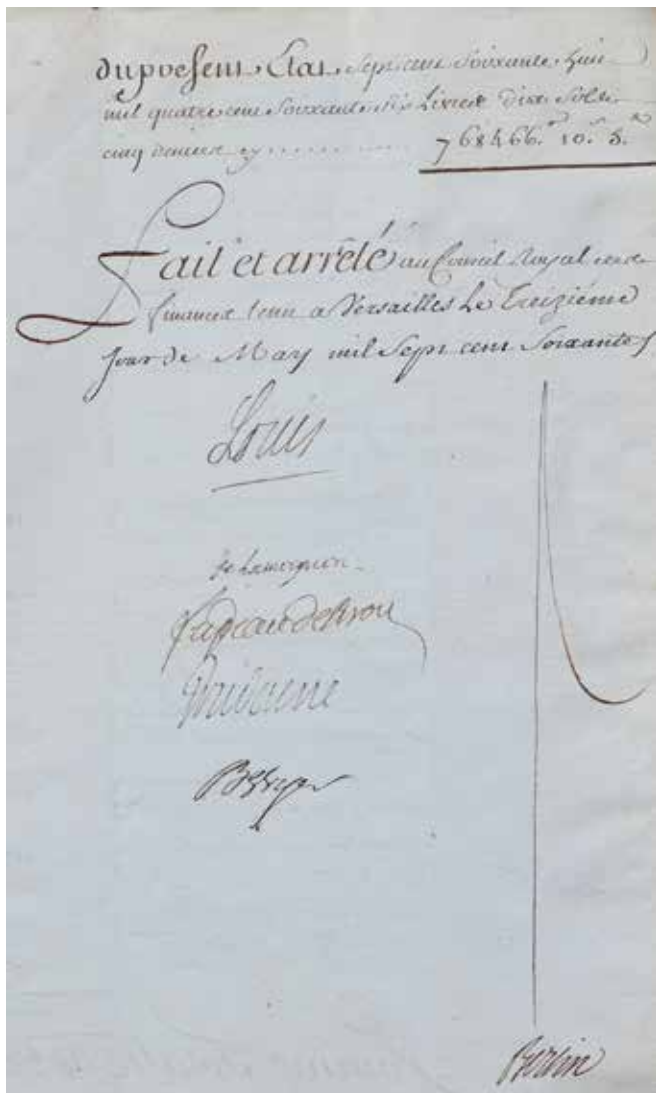 du present Etat, Sept cent Soixante huit
mil quatre cent Soixante six Livres Dix Sols
cinq deniers cy .......... 768466.ᵗᵗ 10.ˢ 5.ᵈ
Fait et arrêté au Conseil Royal des
finances tenu a Versailles Le Treizième
Jour de May mil Sept cent Soixante
Louis
De Lamoignon
Feydeau de Brou
Berryer
Bertin